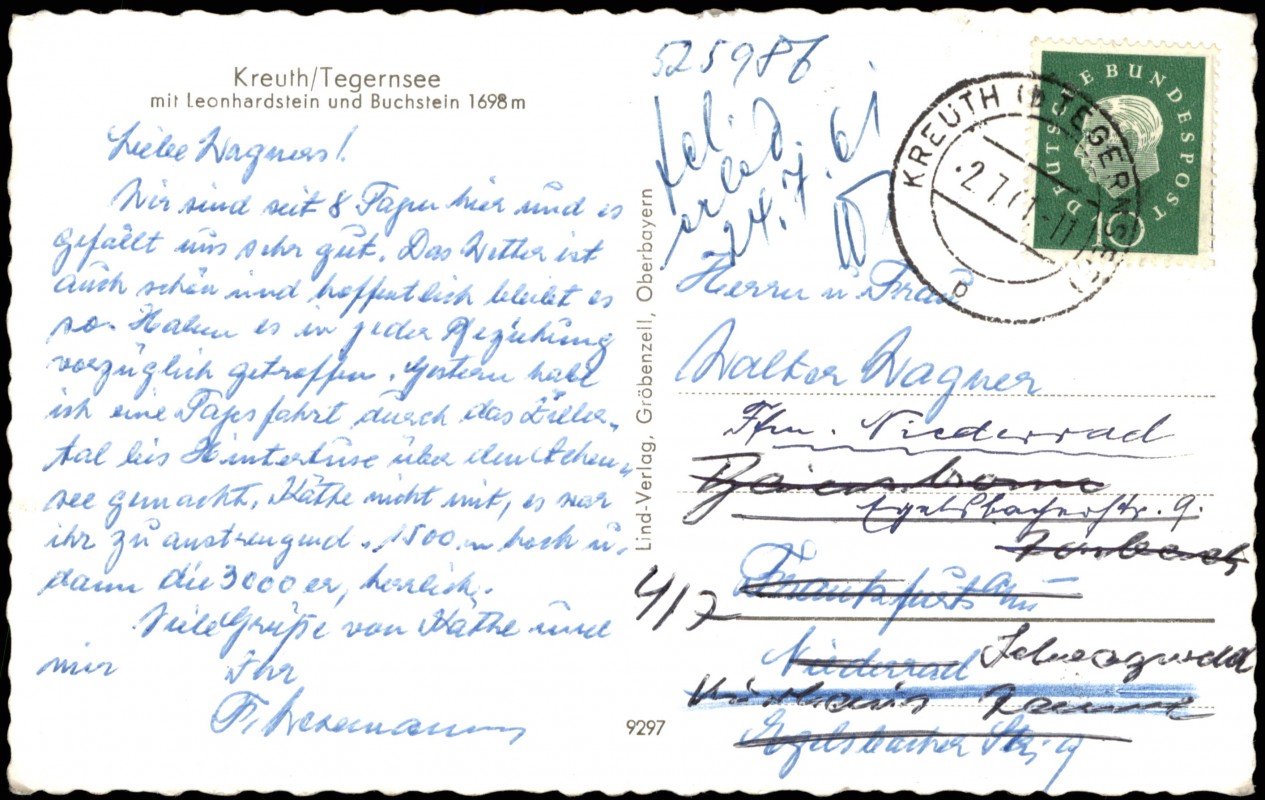 Kreuth/Tegernsee
mit Leonhardstein und Buchstein 1698m
Liebe Wagners!
Wir sind seit 8 Tagen hier und es
gefällt uns sehr gut. Das Wetter ist
auch schön und hoffentlich bleibt es
so. Haben es in jeder Beziehung
vorzüglich getroffen. Gestern habe
ich eine Tagesfahrt durch das Ziller-
tal bis Hintertuxe über den Achen-
see gemacht. Käthe nicht mit, es war
ihr zu anstrengend. 1500 m hoch u.
dann die 3000er, herrlich.
Viele Grüße von Käthe und
mir Ihr
F.
Lind-Verlag, Gröbenzell, Oberbayern
9297
525986
tel.
24.7.61
KREUTH (B TEGERNSEE)
2.7.61-11
b
DEUTSCHE BUNDESPOST
10
Herrn u. Frau
Walter Wagner
Ffm. Niederrad
Egelsbacherstr. 9.
Forbach
Frankfurt am
4/7
Niederrad
Kurhaus
Egelsbacher Str. 9